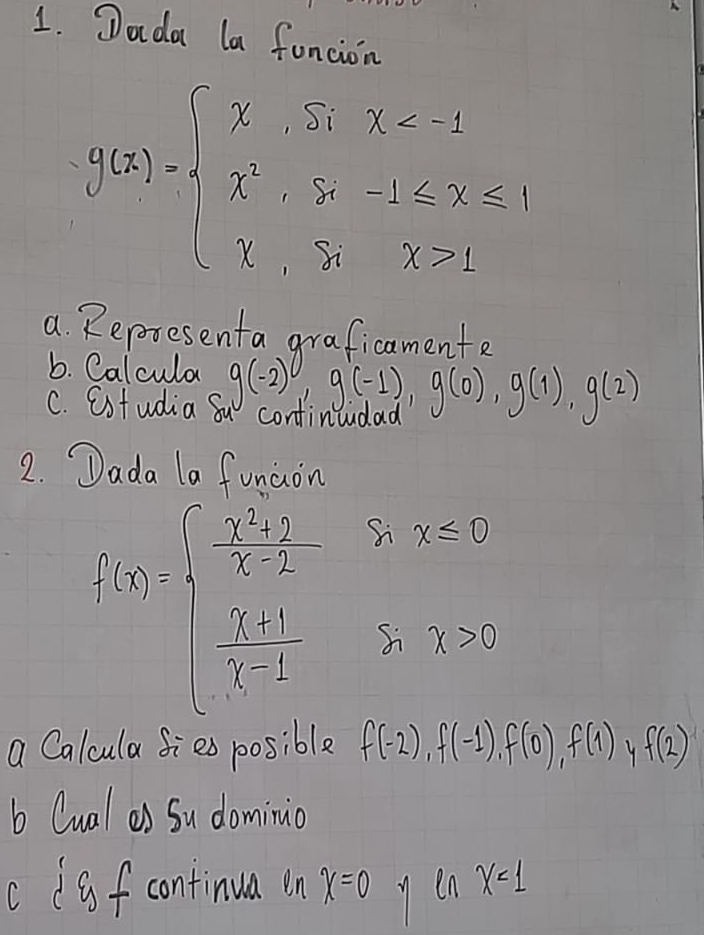 1. Dada la función
g(x) = { x , Si x < -1
x² , Si -1 ≤ x ≤ 1
x , Si x > 1
a. Representa graficamente
b. Calcula g(-2), g(-1), g(0), g(1), g(2)
c. Estudia Su continuidad
2. Dada la función
f(x) = { x²+2 / x-2 Si x ≤ 0
x+1 / x-1 Si x > 0
a Calcula Si es posible f(-2), f(-1), f(0), f(1) y f(2)
b Cual es Su dominio
c ¿Es f continua en x=0 y en x=1